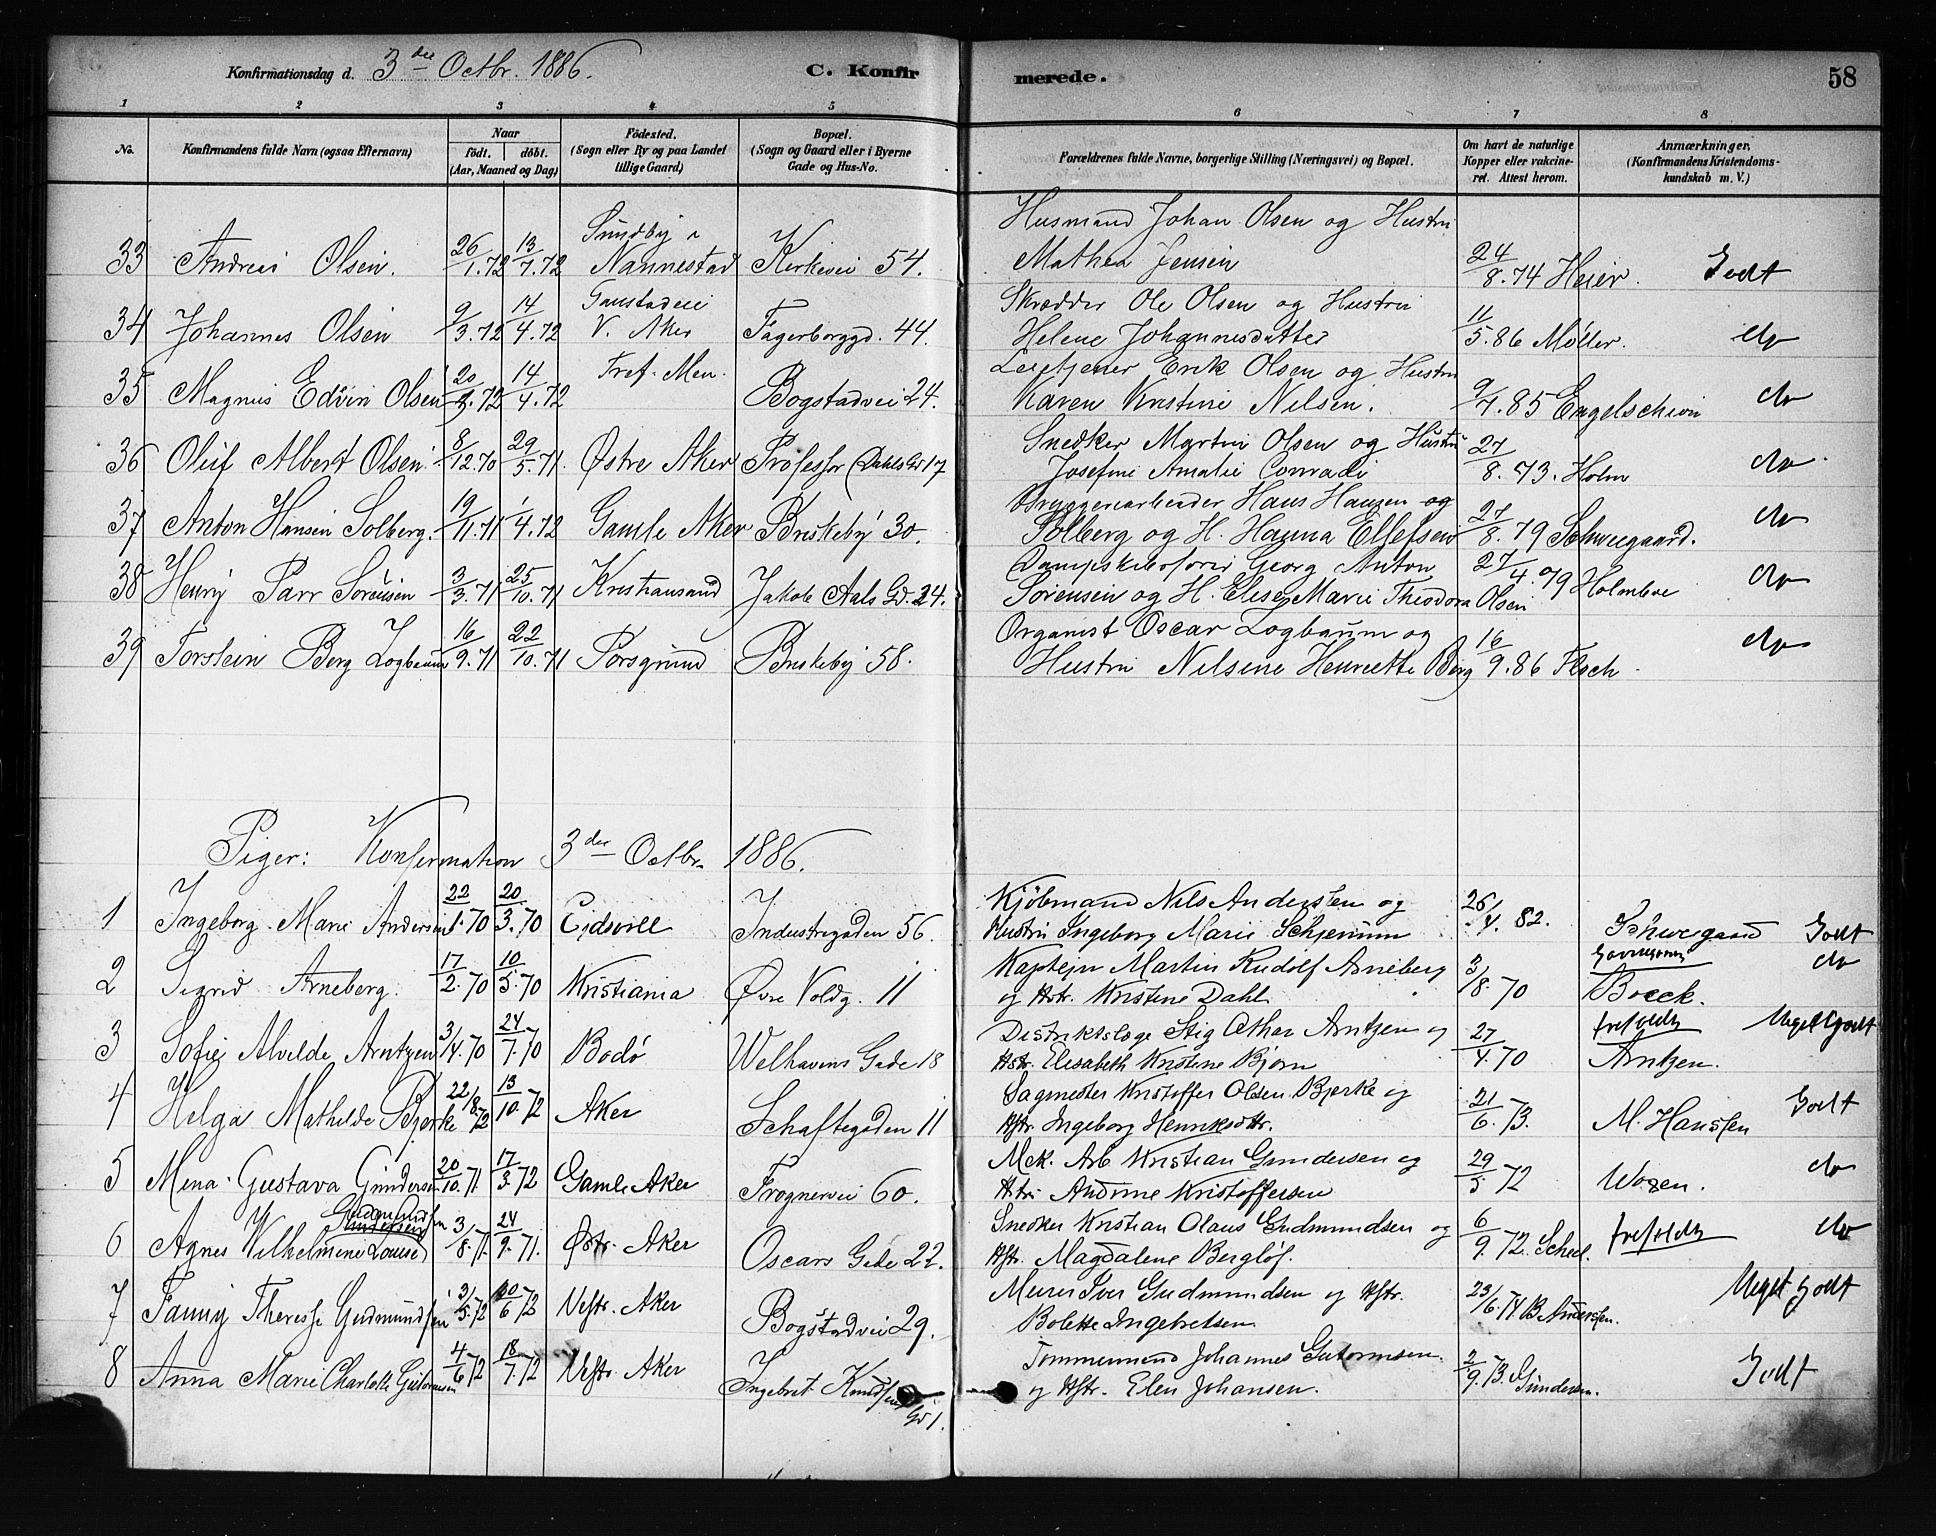 Konfirmationsdag d. 3die Octbr. 1886. C. Konfirmerede. 58
1 2 3 4 5 6 7 8
No. Konfirmandens fulde Navn (ogsaa Efternavn) Naar født. døbt. (Aar, Maaned og Dag) Födested. (Sogn eller By og paa Landet tillige Gaard) Bopæl. (Sogn og Gaard eller i Byerne Gade og Hus-No. Forældrenes fulde Navne, borgerlige Stilling (Næringsvei) og Bopæl. Om havt de naturlige Kopper eller vakcineret. Attest herom. Anmærkninger. (Konfirmandens Kristendomskundskab m. V.)
Sundby i Husmand Johan Olsen og Hustru
33 Andreas Olsen. 26/1.72 13/7.72 Nannestad Kirkevei 54. Mathea Jensen 24/8.74 Heier. Godt
Gaustadeie Skrædder Ole Olsen og Hustru
34 Johannes Olsen 9/3.72 14/4.72 V. Aker Fagerborggd. 44. Helene Johannesdatter 11/5.86 Møller. do
Fref. Men. Erik Olsen og Hustru
35 Magnus Edvin Olsen 20/2.72 14/4.72 Bogstadvei 24. Karen Kristine Nilsen. 9/7.85 Engelschiøn do
Snedker Martin Olsen og Hustru
36 Oluf Albert Olsen 8/12.70 29/5.71. Østre Aker Professor Dahls Gd 17 Josefine Amalie Conradi 27/8.73. Holm do
Bryggeriarbeider Hans Hansen og
37 Anton Hansen Solberg. 19/11.71 1/4.72 Gamle Aker Briskeby 30. Solberg og H. Hanna Ellefsen 27/8.79 Schweegaard. do
Dampskibsfører Georg Anton
38 Henry Parr Sørensen 3/3.71 25/10.71 Kristiansand Jakob Aals Gd. 24. Sørensen og H. Elise Marie Theodora Olsen 27/4.79 Holmboe do
Organist Oscar Logbaum og
39 Torstein Berg Logbaum 16/9.71 22/10.71 Porsgrund Briskeby 58. Hustru Nilsine Henriette Berg 16/9.86 Flock. do
Piger: Konfirmation 3der Octbr. 1886.
Kjøbmand Nils Andersen og
1 Ingeborg Marie Andersen 22/1.70 20/3.70 Eidsvold Industrigaden 56. Hustru Ingeborg Marie Schjerum 26/4.82. Schwegaard Godt
2 Sigrid Arneberg. 17/2.70 10/5.70 Kristiania Øvre Voldg. 11 Kaptejn Martin Rudolf Arneberg 3/8.70 do
og Hstr. Kristine Dahl Boeck.
3 Sofie Alvilde Arntzen 3/4.70 24/7.70 Bodø Welhavens Gade 18 Distriktslæge Stig Othar Arntzen og 27/4.70 frefolder Meget Godt
Hstr. Elisabeth Kristine Bjørn Arntzen.
4 Helga Mathilde Bjerke 22/8.72 13/10.72 Aker Schaftegaden 11 Sagmester Kristoffer Olsen Bjerke og 21/6.73. Godt
Hstr. Ingeborg Henriksdtr. M. Hanssen
5 Mina Gustava Gundersen 20/10.71 17/3.72 Gamle Aker Frognervei 60. Mek. Arb Kristian Gundersen og 29/5 72 do
Hstr. Andrine Kristoffersen Wogen.
Gudmundsen
6 Agnes Wilhelmine Louise 3/8.71. 24/9.71. Østr. Aker Oscars Gade 22. Snedker Kristian Olaus Gudmundsen og 6/9.72. Scheel. frefolder do
Hstr. Magdalene Bergløf.
7 Fanny Therese Gudmundsen 3/5.72 30/6 72 Vestr. Aker Bogstadvei 29. Murer Iver Gudmundsen og Hstr. 23/6.74 B. Anderssen. Meget Godt
Bolette Ingebretsen
8 Anna Marie Charlotte Gutormsen 4/6 72 18/7.72 Vestr. Aker Ingebret Knudsens Gd 1. Tømmermand Johannes Gutormsen 2/9.73. Gundersen. Godt
og Hstr. Elen Johansen.